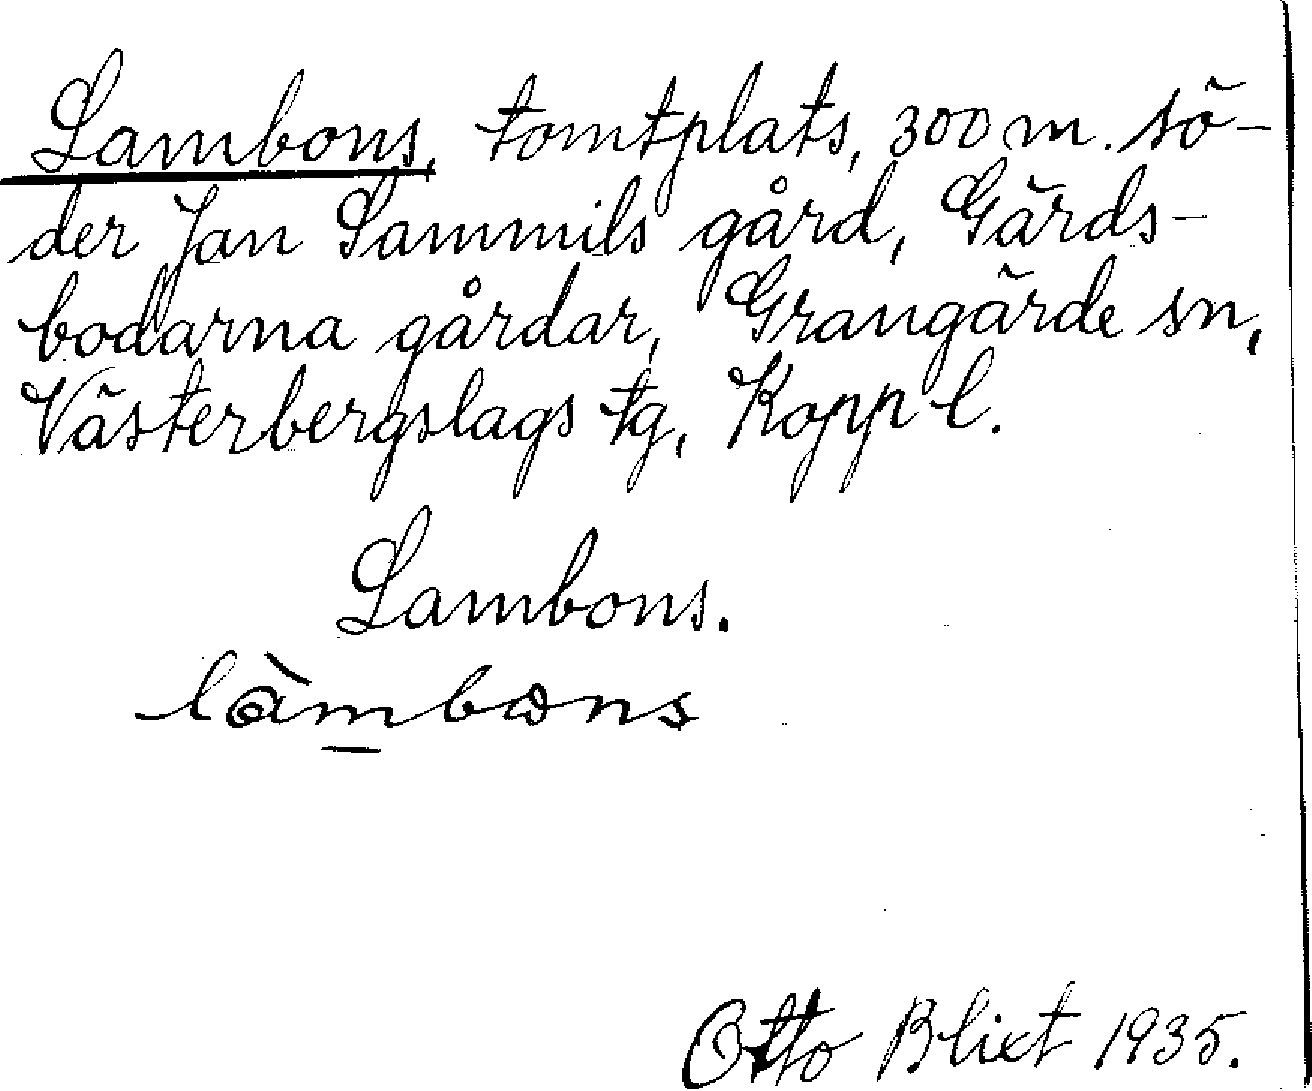 Lambons, tomtplats, 300 m. sö-
der Jan Sammils gård, Gärds-
bodarna gårdar, Grangärde sn,
Västerbergslags tg, Kopp l.
Lambons.
làm̲bɷns
Otto Blixt 1935.